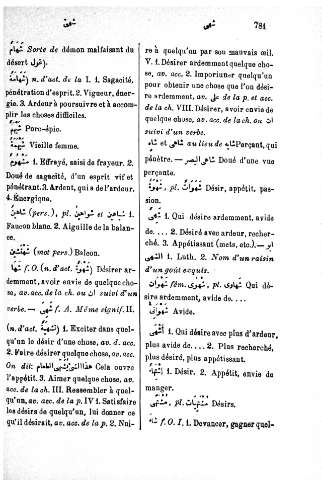 شهق
شهى
781
شَهَّام Sorte de démon malfaisant du
désert (غول).
n. d'act. de la I. 1. Sagacité,
pénétration d'esprit. 2. Vigueur, éner-
gie. 3. Ardeur à poursuivre et à accom-
plir les choses difficiles.
شَيْهَم Porc-épic.
شَيْهَمَة Vieille femme.
مَشْهُوم 1. Effrayé, saisi de frayeur. 2.
Doué de sagacité, d'un esprit vif et
pénétrant. 3. Ardent, qui a de l'ardeur.
4. Énergique.
شاهين (pers.), pl. شواهين et شياهين 1.
Faucon blanc. 2. Aiguille de la balan-
ce.
(mot pers.) Balcon.
شها f. O. (n. d'act. شهوة) Désirer ar-
demment, avoir envie de quelque cho-
se, av. acc. de la ch. ou ان suivi d'un
verbe.— شهى f. A. Même signif. II.
(n. d'act. تشهية) 1. Exciter dans quel-
qu'un le désir d'une chose, av. d. acc.
2. Faire désirer quelque chose, av. acc.
On dit: هذا الشى يشهى الطعام Cela ouvre
l'appétit. 3. Aimer quelque chose, av.
acc. de la ch. III. Ressembler à quel-
qu'un, av. acc. de la p. IV 1. Satisfaire
les désirs de quelqu'un, lui donner ce
qu'il désirait, av. acc. de la p. 2. Nui-
re à quelqu'un par son mauvais œil.
V. 1. Désirer ardemment quelque cho-
se, av. acc. 2. Importuner quelqu'un
pour obtenir une chose que l'on dési-
re ardemment, av. على de la p. et acc.
de la ch. VIII. Désirer, avoir envie de
quelque chose, av. acc. de la ch. ou ان
suivi d'un verbe.
شاه et شاهى au lieu de شائه Perçant, qui
pénètre.— شاهى البصر Doué d'une vue
perçante.
شَهْوَة, pl. شَهَوات Désir, appétit, pas-
sion.
شهى 1. Qui désire ardemment, avide
de.... 2. Désiré avec ardeur, recher-
ché. 3. Appétissant (mets, etc.).— ابو
شهى 1. Luth. 2. Nom d'un raisin
d'un goût exquis.
شهوان fém. شهوى, pl. شهاوى Qui dé-
sire ardemment, avide de....
شهوانى Avide.
اشهى 1. Qui désire avec plus d'ardeur,
plus avide de.... 2. Plus recherché,
plus désiré, plus appétissant.
اشتهاء 1. Désir. 2. Appétit, envie de
manger.
مشتهى, pl. مشتهيات Désirs.
شاء f. O. I. 1. Devancer, gagner quel-